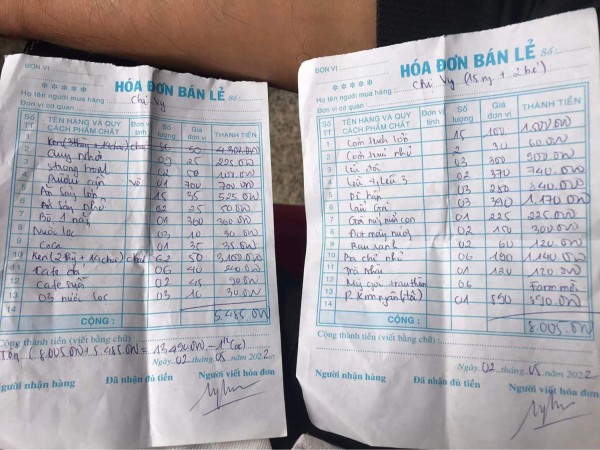 ĐƠN VỊ :
HÓA ĐƠN BÁN LẺ Số:
Họ tên người mua hàng: Chị Vy
Đơn vị cơ quan
Số TT TÊN HÀNG VÀ QUY CÁCH PHẨM CHẤT Đơn vị tính Số lượng Giá đơn vị THÀNH TIỀN
1 50
2 09 25 225.000
3 strong boat 02 50 100.000
4 01 700 700.000
5 Ăn sáng lớn 15 35 525.000
6 Ăn sáng nhỏ 02 25 50.000
7 Bò 1 nắng 01 360 360.000
8 Nước lọc 03 10 30.000
9 Coca 01 35 35.000
10 Ken 62 50 3.100.000
11 Cafe đá 06 40 240.000
12 Cafe sữa 02 45 90.000
13 03 nước lọc 03 10 30.000
14
CỘNG : 5.485.000
Cộng thành tiền (viết bằng chữ) :
8.005.000 + 5.485.000 = 13.490.000
Ngày 02 tháng 05 năm 2022
Người nhận hàng Đã nhận đủ tiền Người viết hóa đơn
ĐƠN VỊ :
HÓA ĐƠN BÁN LẺ Số:
Họ tên người mua hàng: Chị Vy (15 ng + 2 bé)
Đơn vị cơ quan
Số TT TÊN HÀNG VÀ QUY CÁCH PHẨM CHẤT Đơn vị tính Số lượng Giá đơn vị THÀNH TIỀN
1 Cơm trưa lớn 15 100 1.500.000
2 Cơm trưa nhỏ 2 30 60.000
3 Lều đôi 03 300 900.000
4 Lều 4, Lều 3 02 370 740.000
5 03 280 840.000
6 Lẩu 03 390 1.170.000
7 01 225 225.000
8 02 150 300.000
9 Rau xanh 02 60 120.000
10 Ba chỉ nhỏ 06 190 1.140.000
11 01 120 120.000
12 06
13 P. Kim ngân (tối) 01 890 890.000
14
CỘNG : 8.005.000
Cộng thành tiền (viết bằng chữ) :
Ngày 02 tháng 05 năm 2022
Người nhận hàng Đã nhận đủ tiền Người viết hóa đơn